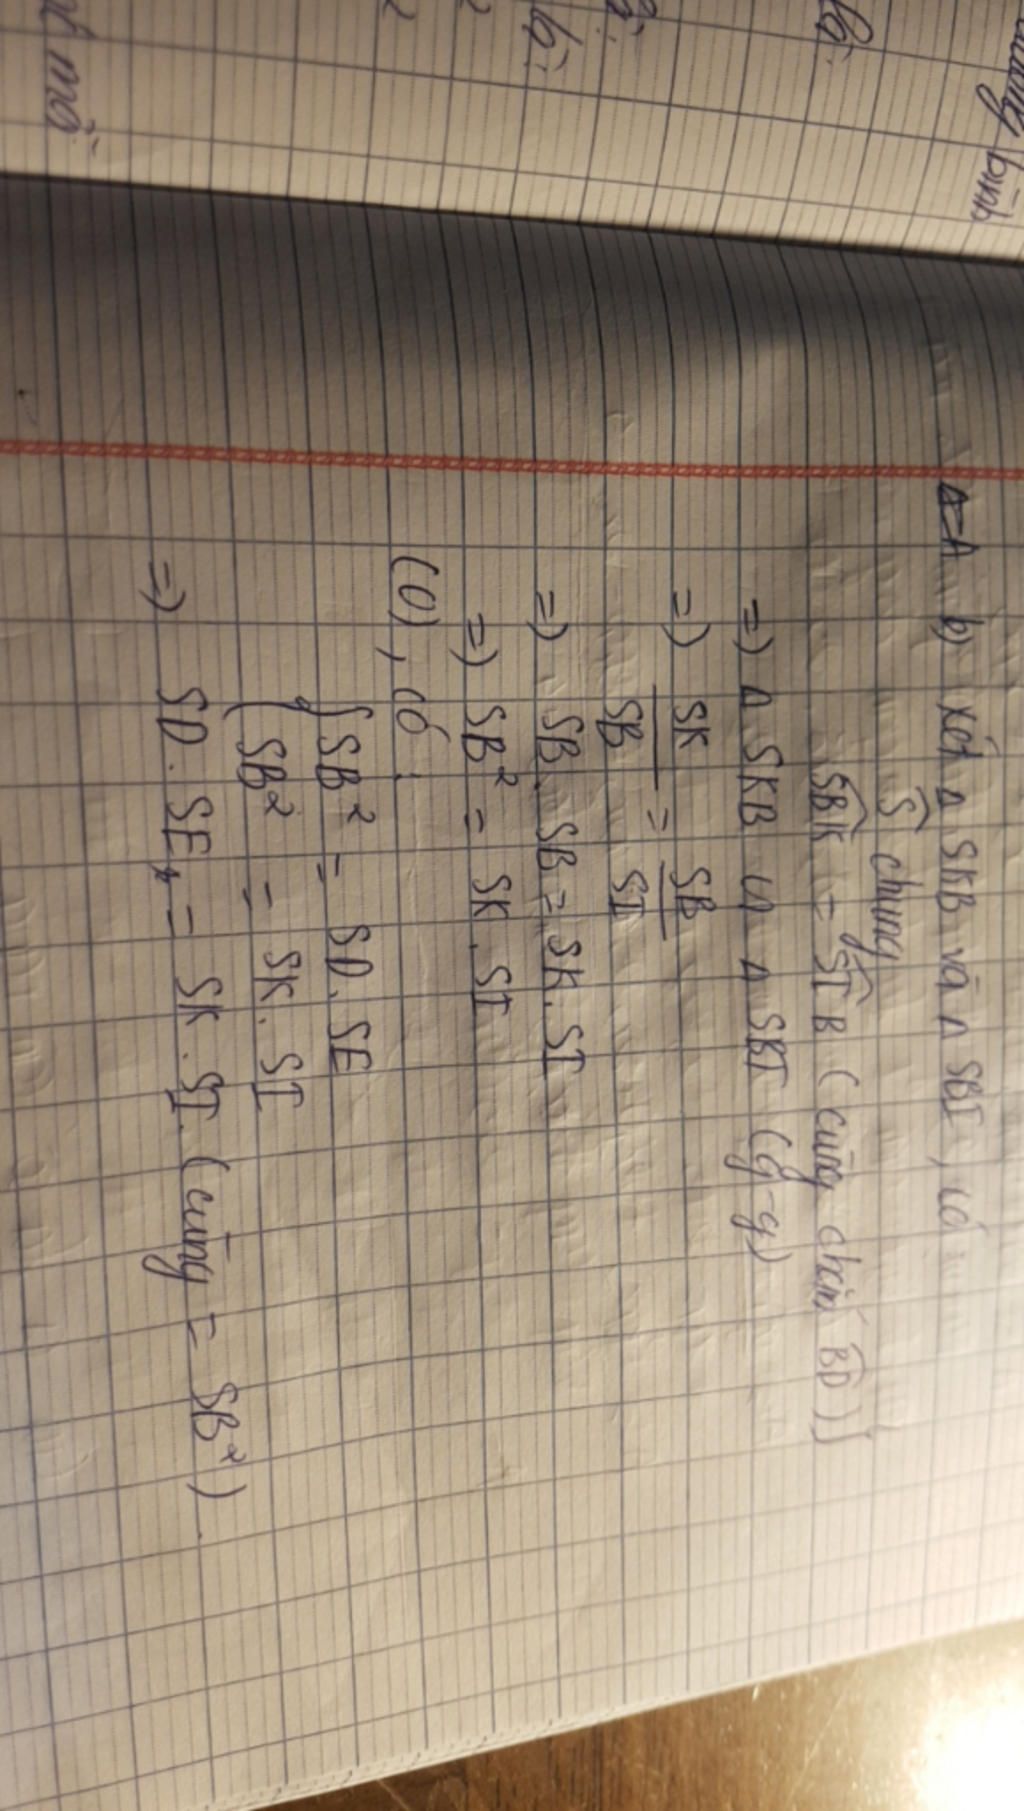 b) xét Δ SKB và Δ SBI, có
Ŝ chung
SBK = SIB (cùng chắn BD)}
=) Δ SKB ∽ Δ SBI (g-g)
=) SK/SB = SB/SI
=) SB. SB = SK. SI
=) SB² = SK. SI
(O), có:
{SB² = SD. SE
{SB² = SK. SI
=) SD. SE = SK. SI. (cùng = SB²).
bình
là:
là:
mỗ